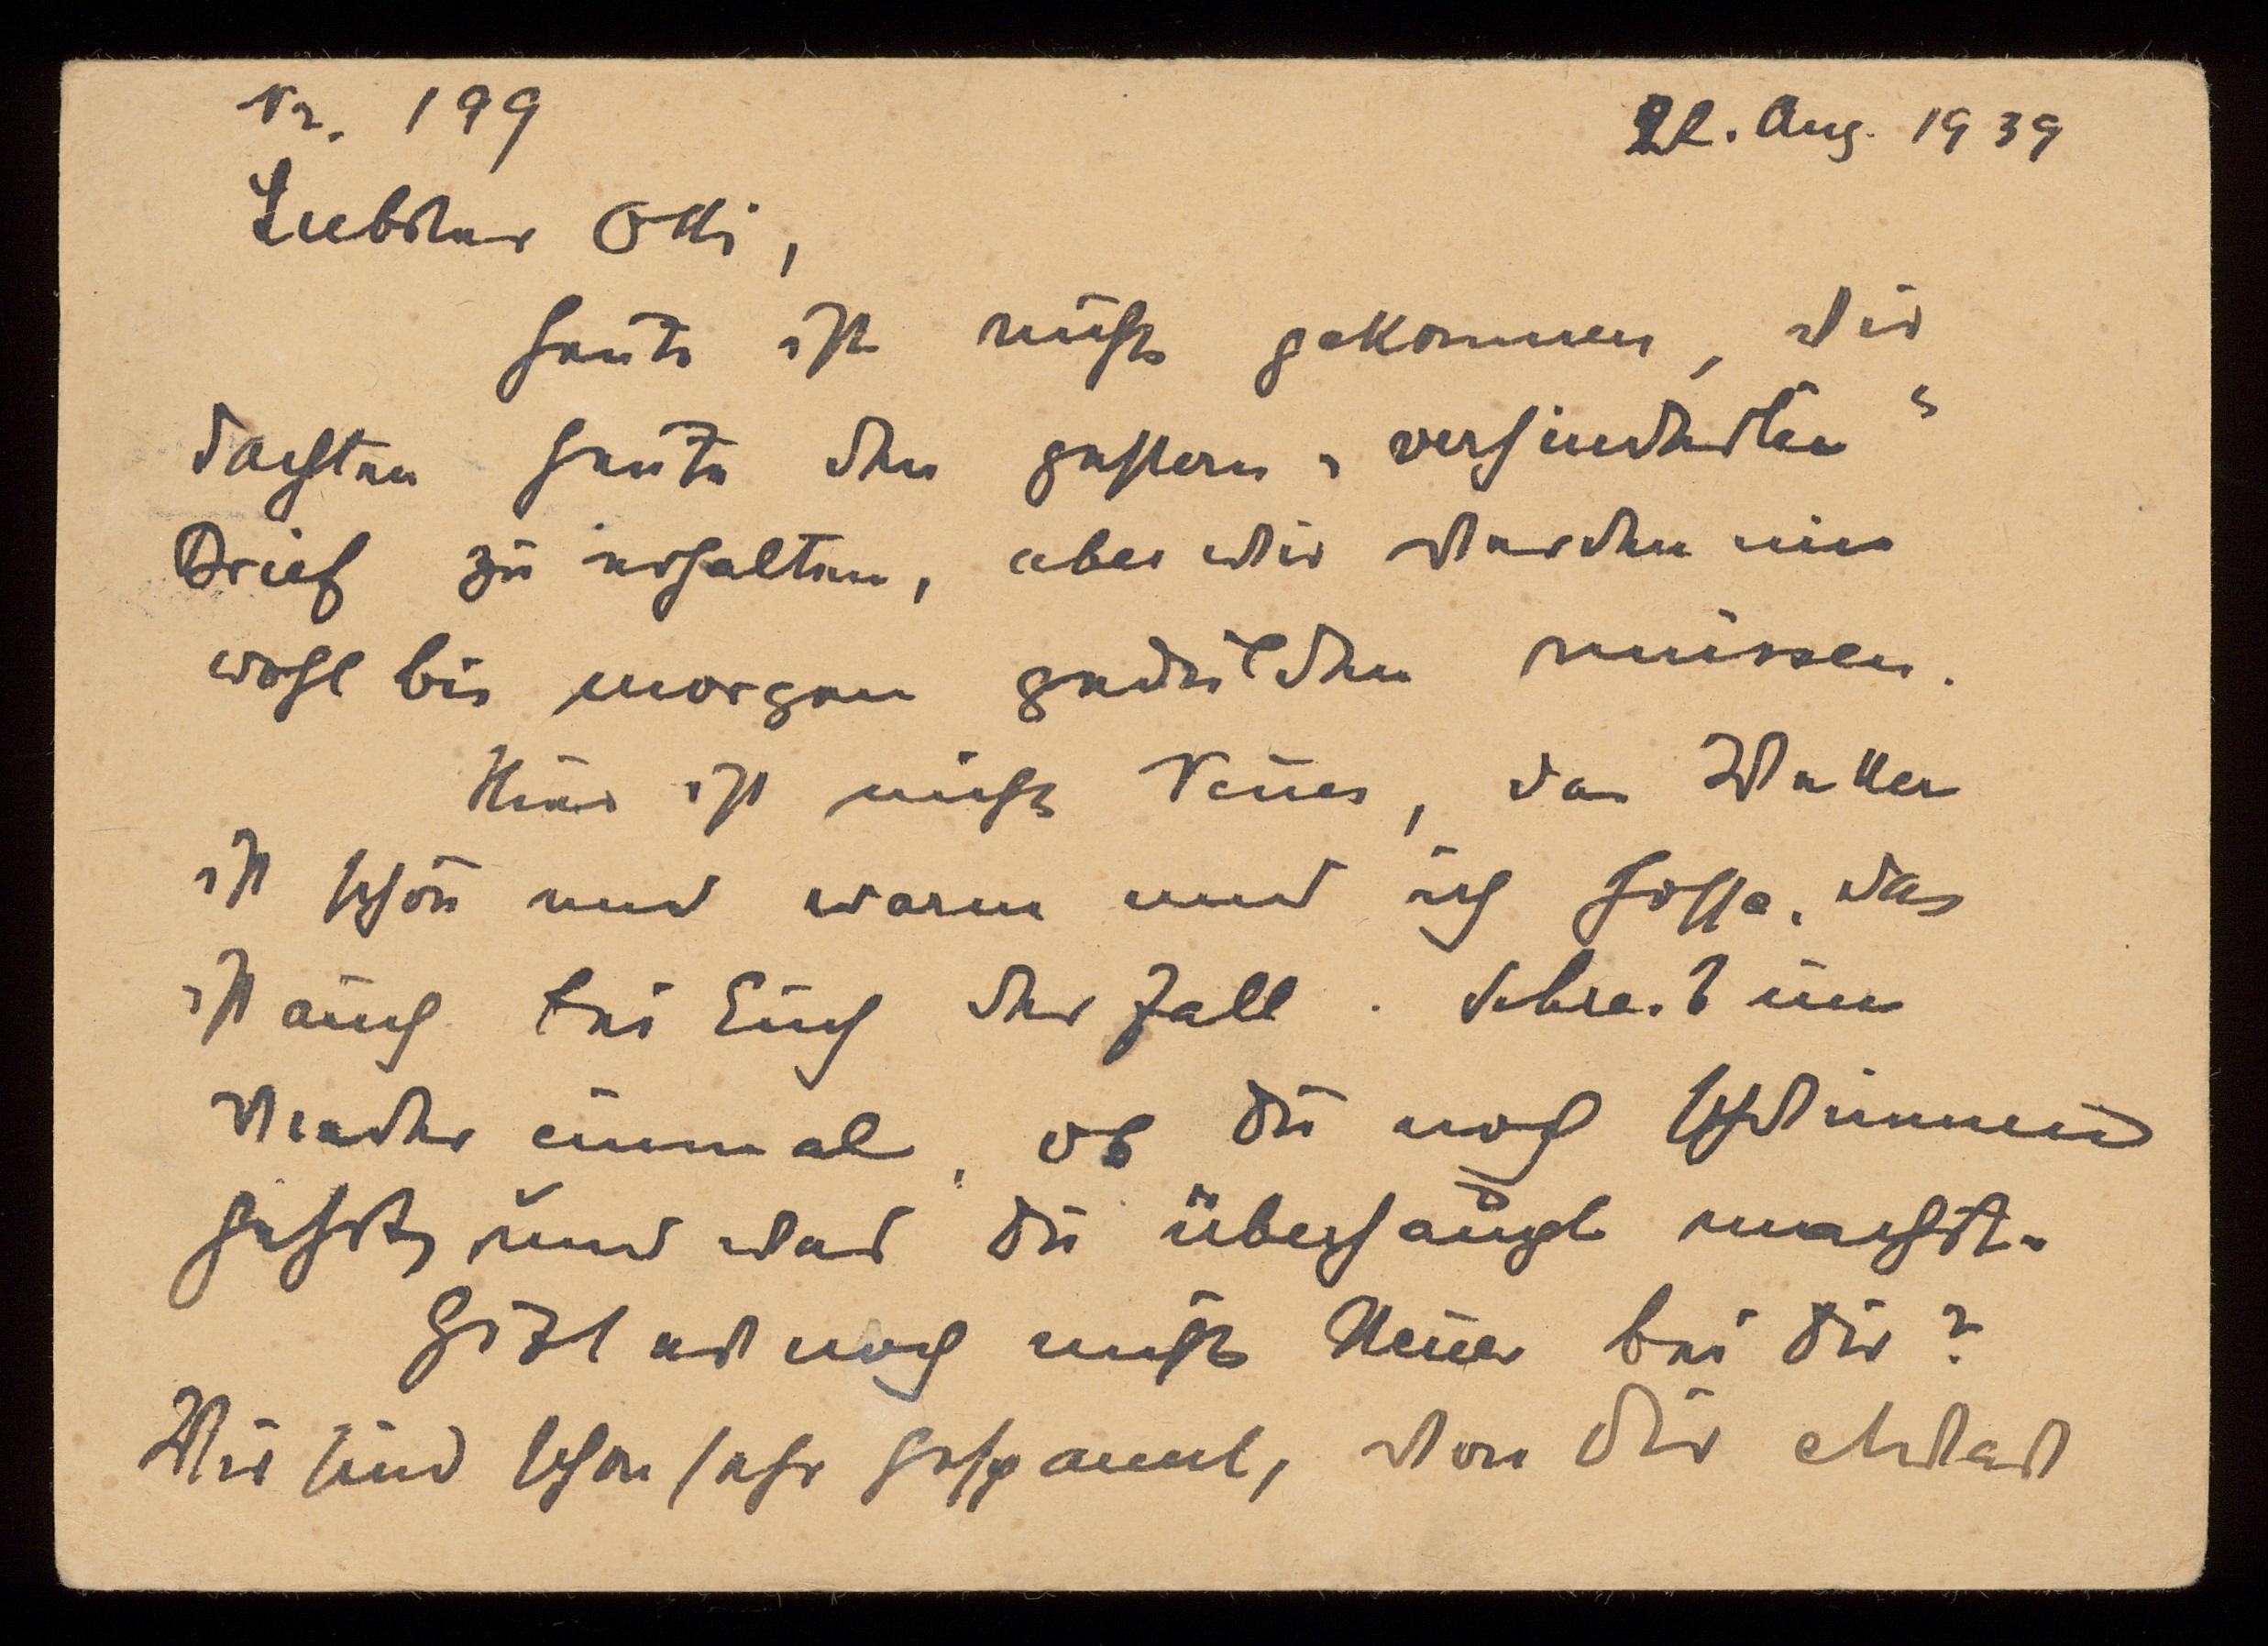 Nr. 199 22. Aug. 1939
Liebster Otti,
heute ist nichts gekommen, wir
dachten heute den gestern „verhinderten“
Brief zu erhalten, aber wir werden uns
wohl bis morgen gedulden müssen.
Hier ist nichts Neues, das Wetter
ist schön und warm und ich hoffe, das
ist auch bei Euch der Fall. Schreib uns
wieder einmal, ob Du noch schwimmen
gehst, und was Du überhaupt machst.
Gibt es noch nichts Neues bei Dir?
Wir sind schon sehr gespannt, von Dir etwas